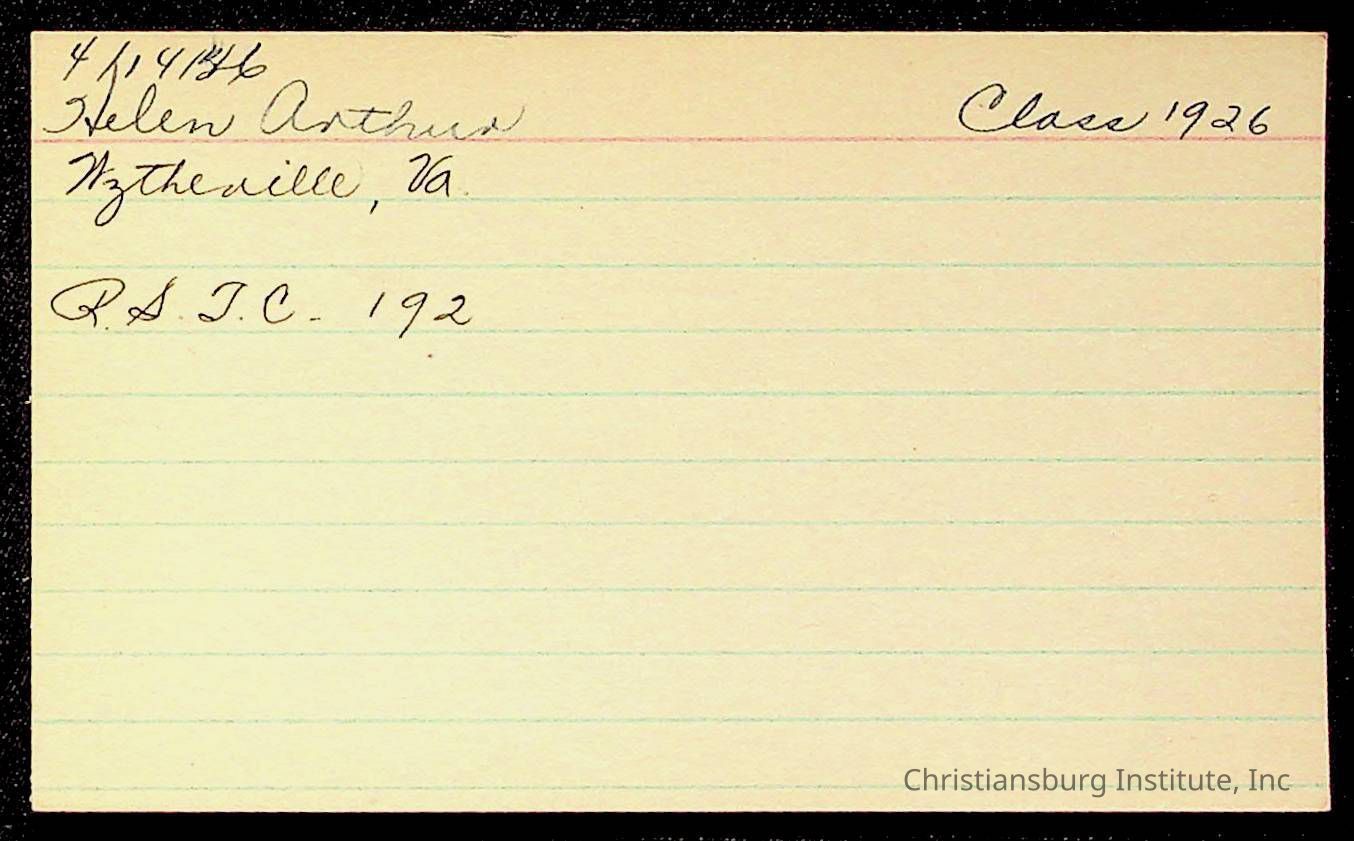 4/14/36
Helen Arthur
Class 1926
Wytheville, Va.
R.S.T.C. - 192
Christiansburg Institute, Inc